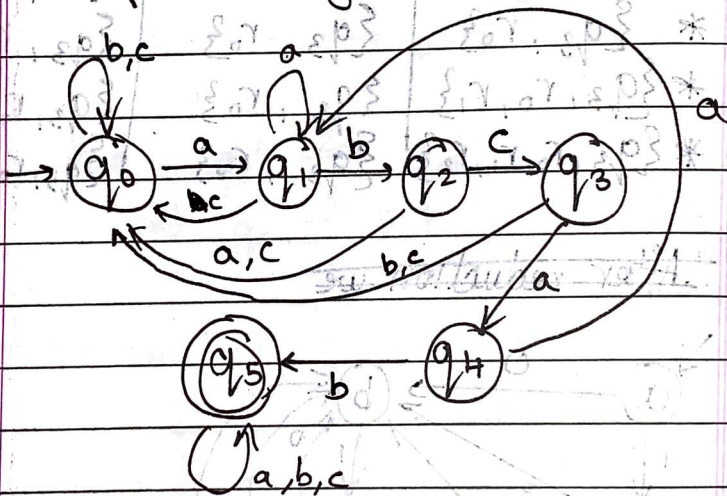 b,c
a
a
q0
a
q1
b
q2
c
q3
c
a,c
b,c
a
q5
b
q4
a,b,c